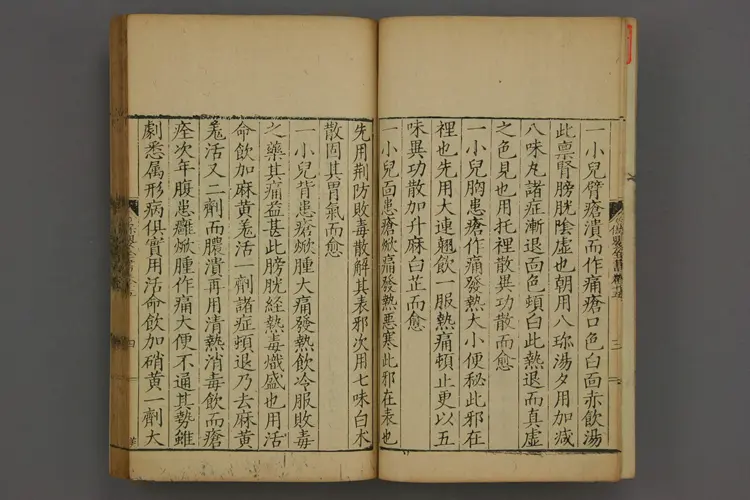 一小兒臂瘡潰而作痛瘡口色白面赤飲湯
此禀腎膀胱陰虛也朝用八珎湯夕用加减
八味丸諸症漸退面色頓白此熱退而真虛
之色見也用托裡散異功散而愈
一小兒胸患瘡作痛發熱大小便秘此邪在
裡也先用大連翹飲一服熱痛頓止更以五
味異功散加升麻白芷而愈
一小兒面患瘡焮痛發熱惡寒此邪在表也
先用荆防敗毒散解其表邪次用七味白朮
散固其胃氣而愈
一小兒背患瘡焮腫大痛發熱飲冷服敗毒
之藥其痛益甚此膀胱經熱毒熾盛也用活
命飲加麻黄羗活一劑諸症頓退乃去麻黄
羗活又二劑而膿潰再用清熱消毒飲而瘡
痊次年腹患癰焮腫作痛大便不通其勢雖
劇悉属形病俱實用活命飲加硝黄一劑大
三
四